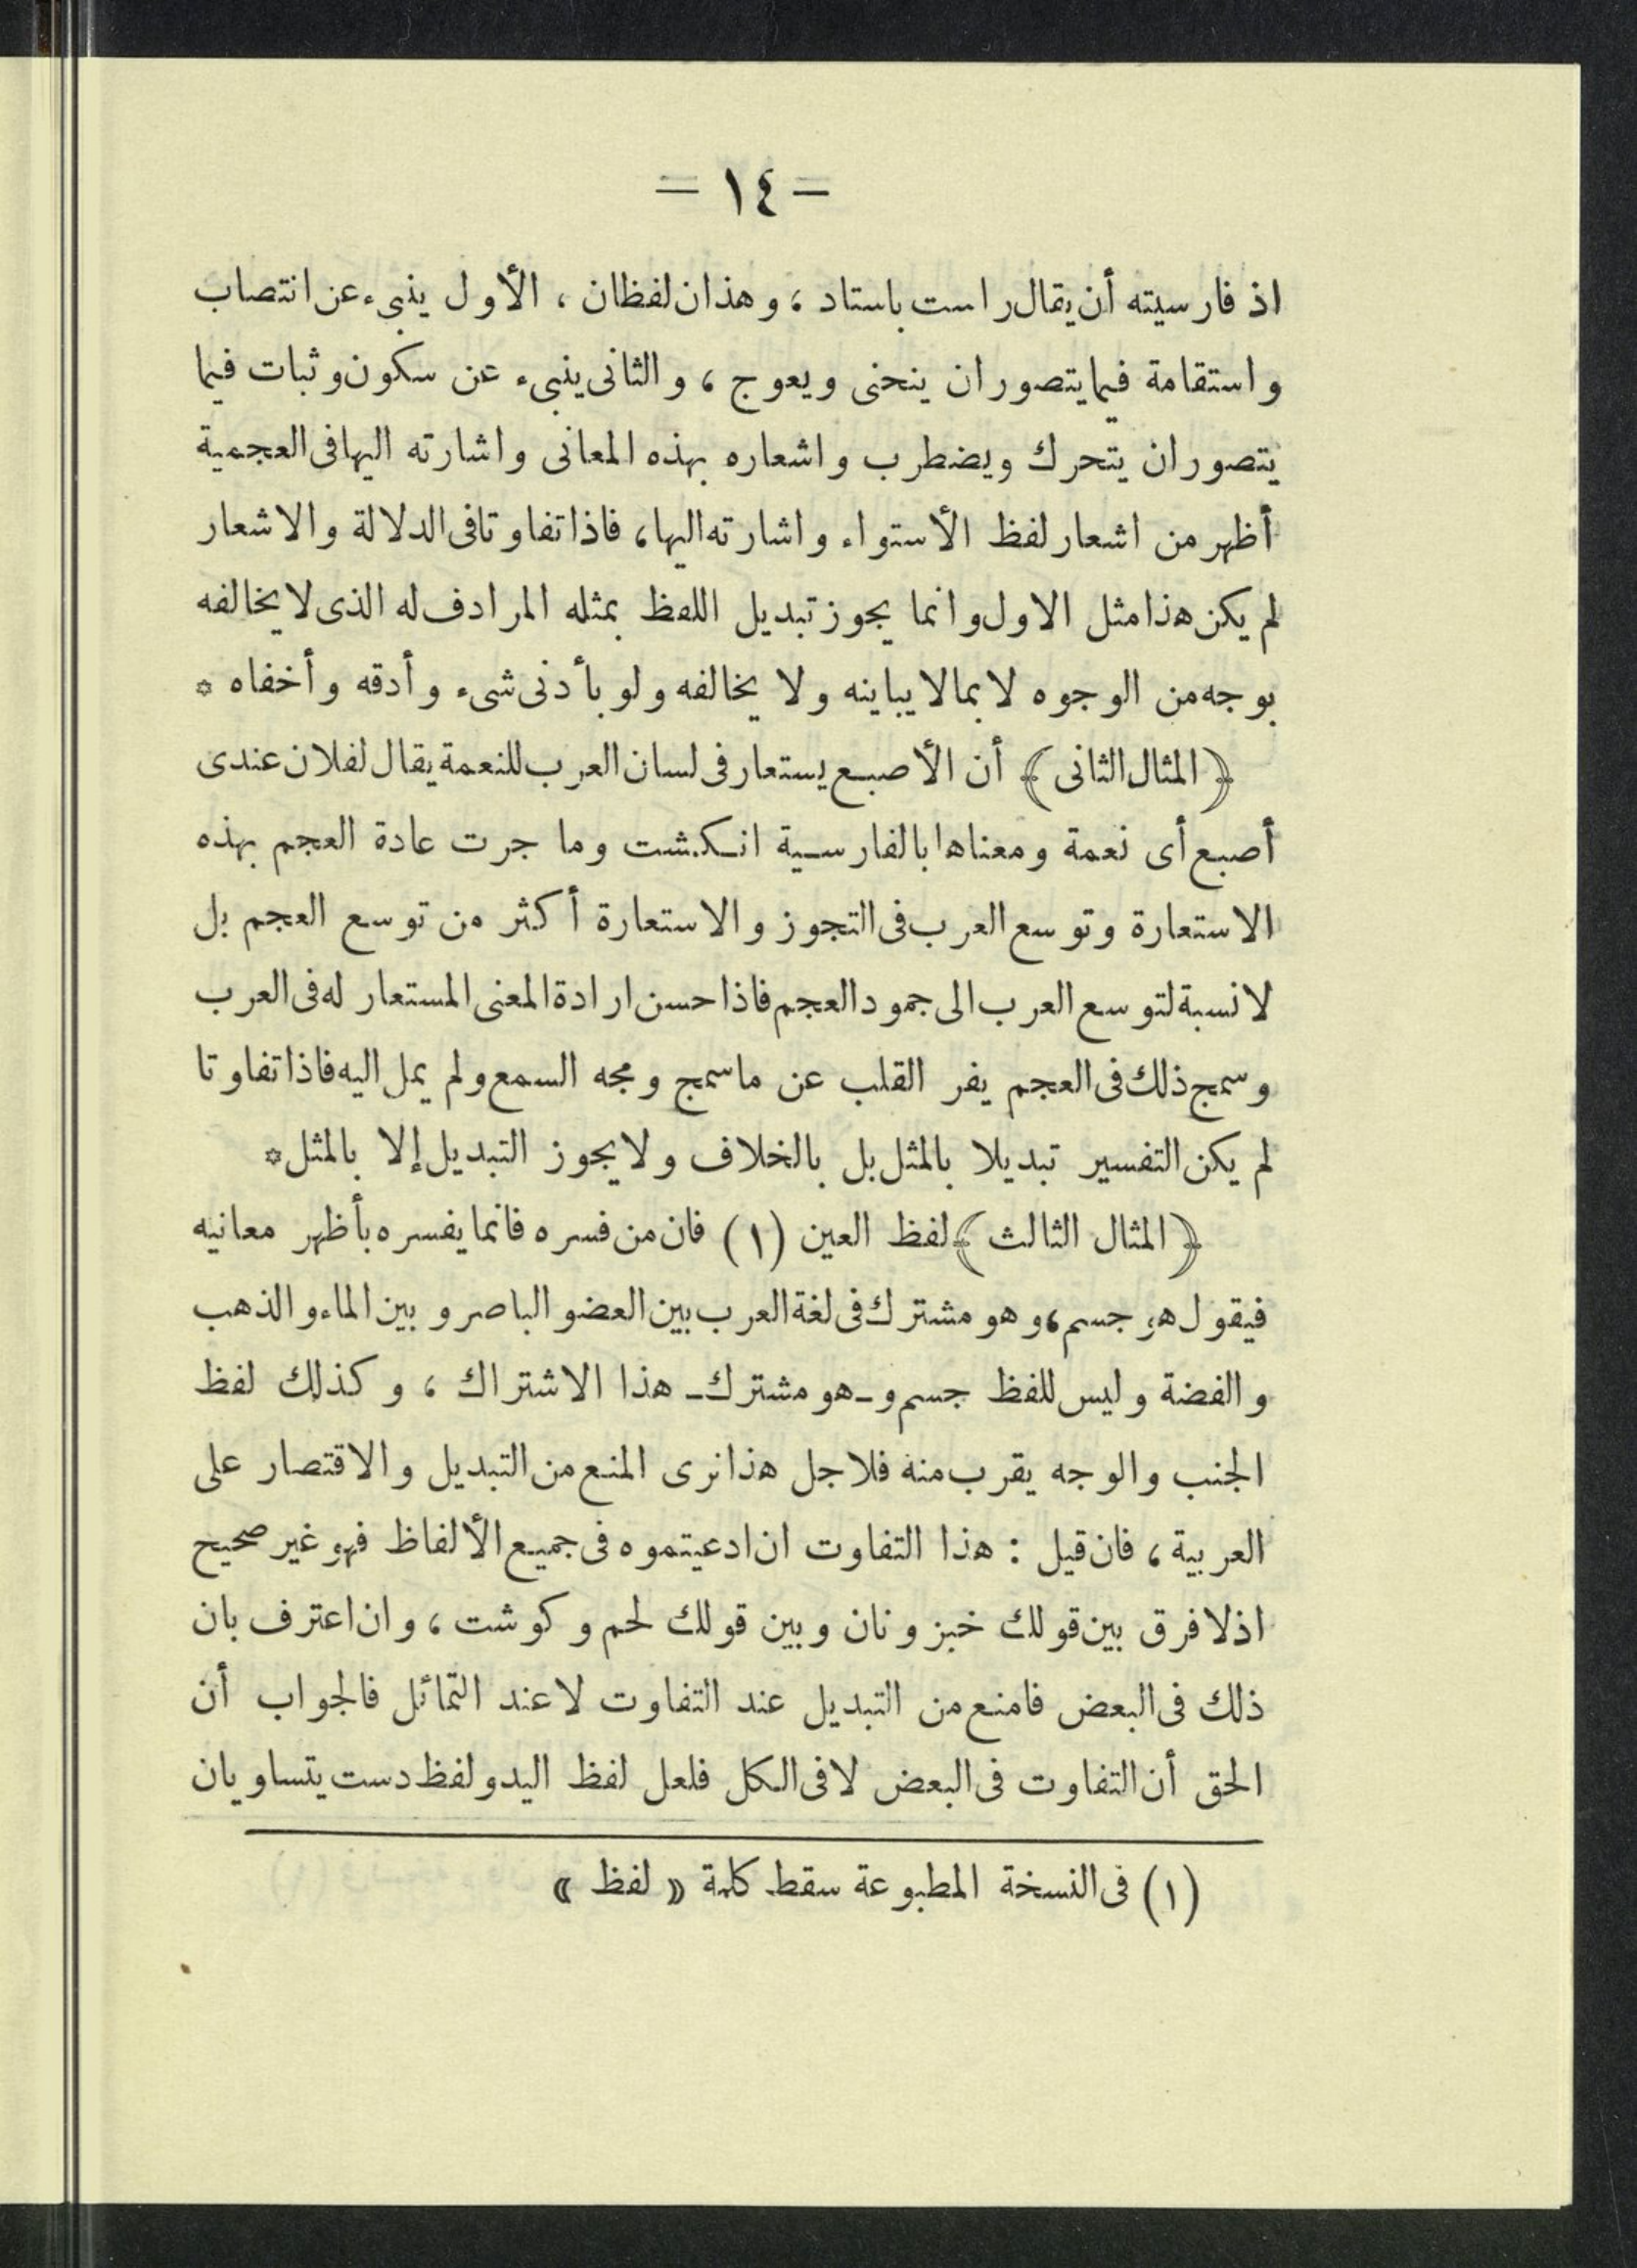 = ١٤ =
اذ فارسيته أن يقال راست باستاد ، وهذان لفظان ، الأول ينبىء عن انتصاب
واستقامة فيما يتصور ان ينحنى ويعوج ، والثانى ينبىء عن سكون وثبات فيما
يتصور ان يتحرك ويضطرب واشعاره بهذه المعانى واشارته اليها فى العجمية
أظهر من اشعار لفظ الأستواء واشارته اليها ، فاذا تفاوتا فى الدلالة والاشعار
لم يكن هذا مثل الاول وانما يجوز تبديل اللفظ بمثله المرادف له الذى لا يخالفه
بوجه من الوجوه لا بما لا يباينه ولا يخالفه ولو بأدنى شىء وأدقه وأخفاه *
﴿ المثال الثانى ﴾ أن الأصبع يستعار فى لسان العرب للنعمة يقال لفلان عندى
أصبع أى نعمة ومعناها بالفارسية انكشت وما جرت عادة العجم بهذه
الاستعارة وتوسع العرب فى التجوز والاستعارة أكثر من توسع العجم بل
لا نسبة لتوسع العرب الى جمود العجم فاذا حسن ارادة المعنى المستعار له فى العرب
وسمج ذلك فى العجم يفر القلب عن ما سمج ومجه السمع ولم يمل اليه فاذا تفاوتا
لم يكن التفسير تبديلا بالمثل بل بالخلاف ولا يجوز التبديل إلا بالمثل *
﴿ المثال الثالث ﴾ لفظ العين (١) فان من فسره فانما يفسره بأظهر معانيه
فيقول هو جسم ، وهو مشترك فى لغة العرب بين العضو الباصر وبين الماء والذهب
والفضة وليس للفظ جسم و ـ هو مشترك ـ هذا الاشتراك ، وكذلك لفظ
الجنب والوجه يقرب منه فلاجل هذا نرى المنع من التبديل والاقتصار على
العربية ، فان قيل : هذا التفاوت ان ادعيتموه فى جميع الألفاظ فهو غير صحيح
اذ لا فرق بين قولك خبز ونان وبين قولك لحم وكوشت ، وان اعترف بان
ذلك فى البعض فامنع من التبديل عند التفاوت لا عند التماثل فالجواب أن
الحق أن التفاوت فى البعض لا فى الكل فلعل لفظ اليد ولفظ دست يتساويان
(١) فى النسخة المطبوعة سقط كلمة « لفظ »